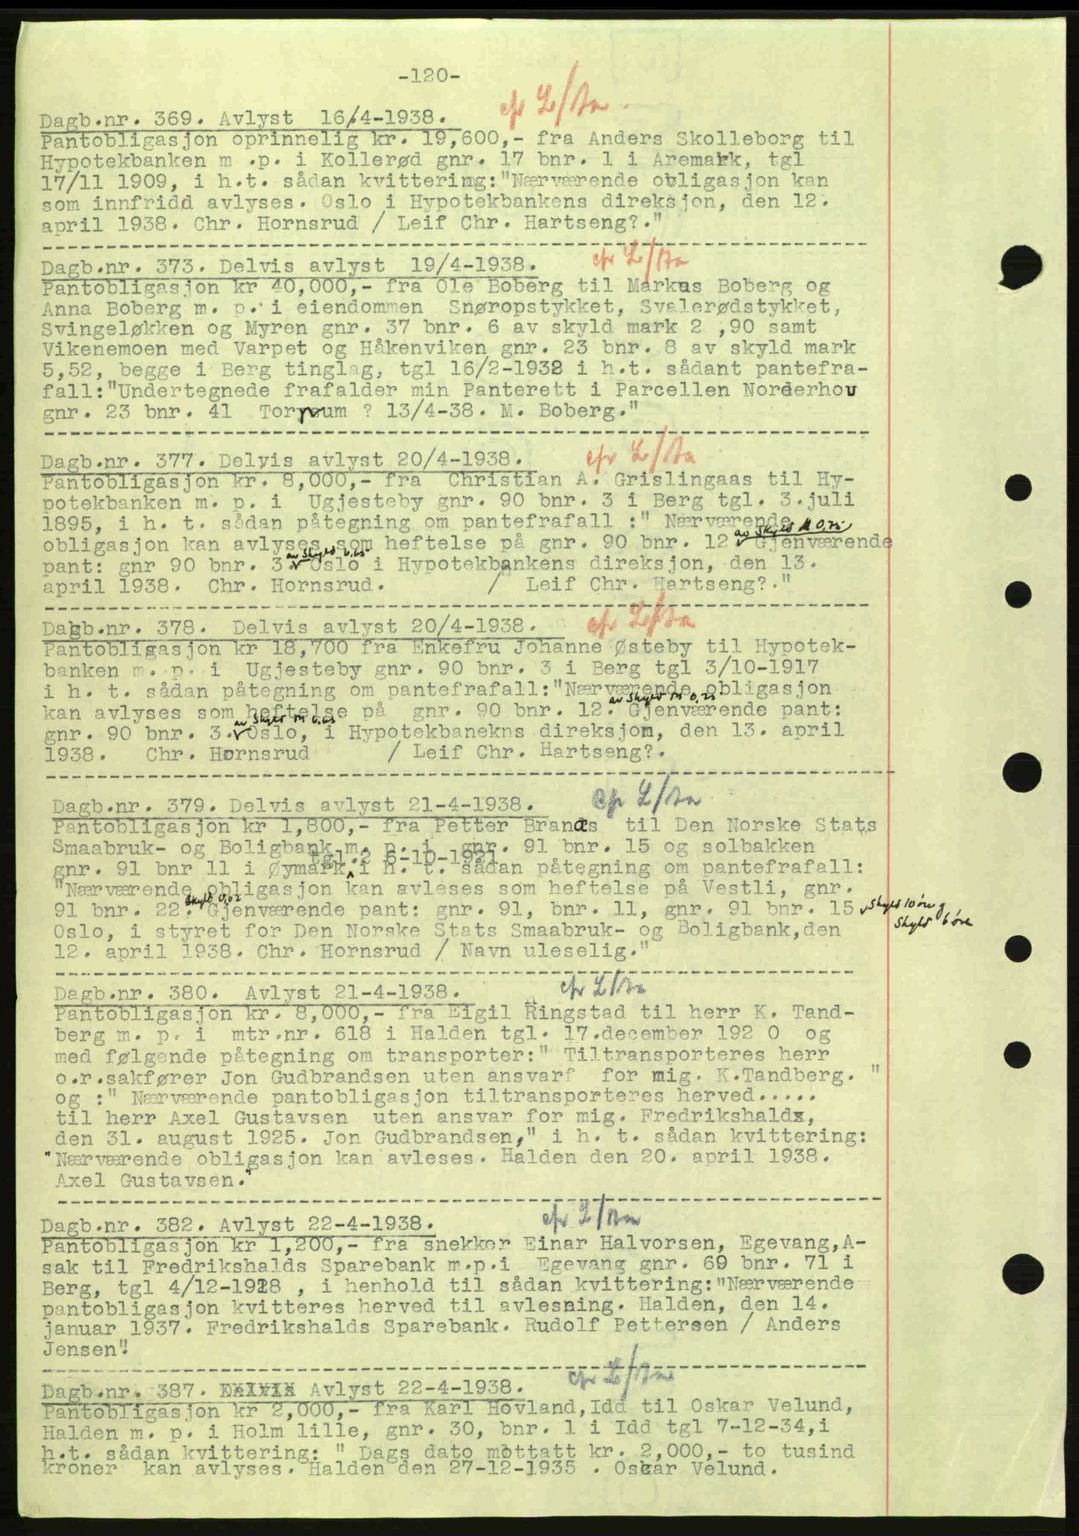 -120-
Dagb.nr. 369. Avlyst 16/4-1938.
Pantobligasjon oprinnelig kr. 19,600,- fra Anders Skolleborg til
Hypotekbanken m .p. i Kollerød gnr. 17 bnr. 1 i Aremark, tgl
17/11 1909, i h.t. sådan kvittering:"Nærværende obligasjon kan
som innfridd avlyses. Oslo i Hypotekbankens direksjon, den 12.
april 1938. Chr. Hornsrud / Leif Chr. Hartseng?."
Dagb.nr. 373. Delvis avlyst 19/4-1938.
Pantobligasjon kr 40,000,- fra Ole Boberg til Markus Boberg og
Anna Boberg m. p. i eiendommen Snøropstykket, Svalerødstykket,
Svingeløkken og Myren gnr. 37 bnr. 6 av skyld mark 2 ,90 samt
Vikenemoen med Varpet og Håkenviken gnr. 23 bnr. 8 av skyld mark
5,52, begge i Berg tinglag, tgl 16/2-1932 i h.t. sådant pantefra-
fall:"Undertegnede frafalder min Panterett i Parcellen Norderhov
gnr. 23 bnr. 41 ? 13/4-38. M. Boberg."
Dagb.nr. 377. Delvis avlyst 20/4-1938.
Pantobligasjon kr. 8,000,- fra Christian A. Grislingaas til Hy-
potekbanken m. p. i Ugjesteby gnr. 90 bnr. 3 i Berg tgl. 3.juli
1895, i h. t. sådan påtegning om pantefrafall :" Nærværende
av skyld M 0,25
obligasjon kan avlyses som heftelse på gnr. 90 bnr. 12 Gjenværende
av skyld
pant: gnr 90 bnr. 3 Oslo i Hypotekbankens direksjon, den 13.
april 1938. Chr. Hornsrud. / Leif Chr. Hartseng?."
Dagb.nr. 378. Delvis avlyst 20/4-1938.
Pantobligasjon kr 18,700 fra Enkefru Johanne Østeby til Hypotek-
banken m. p. i Ugjesteby gnr. 90 bnr. 3 i Berg tgl 3/10-1917
i h. t. sådan påtegning om pantefrafall:"Nærværende obligasjon
av skyld M 0,25
kan avlyses som heftelse på gnr. 90 bnr. 12. Gjenværende pant:
av skyld
gnr. 90 bnr. 3. Oslo, i Hypotekbanekns direksjom, den 13. april
1938. Chr. Hornsrud / Leif Chr. Hartseng?.
Dagb.nr. 379. Delvis avlyst 21-4-1938.
Pantobligasjon kr 1,800,- fra Petter Brandes til Den Norske Stats
Smaabruk- og Boligbank m. p. i gnr. 91 bnr. 15 og solbakken
tgl. 2 6-10-1921
gnr. 91 bnr 11 i Øymark i h. t. sådan påtegning om pantefrafall:
"Nærværende obligasjon kan avleses som heftelse på Vestli, gnr.
skyld 0,02
91 bnr. 22. Gjenværende pant: gnr. 91, bnr. 11, gnr. 91 bnr. 15 skyld 10 øre g
skyld 6 øre
Oslo, i styret for Den Norske Stats Smaabruk- og Boligbank,den
12. april 1938. Chr. Hornsrud / Navn uleselig."
Dagb.nr. 380. Avlyst 21-4-1938.
Pantobligasjon kr. 8,000,- fra Eigil Ringstad til herr K. Tand-
berg m. p. i mtr.nr. 618 i Halden tgl. 17.december 192 0 og
med følgende påtegning om transporter:" Tiltransporteres herr
o.r.sakfører Jon Gudbrandsen uten ansvar for mig. K.Tandberg. "
og :" Nærværende pantobligasjon tiltransporteres herved.....
til herr Axel Gustavsen uten ansvar for mig. Fredrikshald,
den 31. august 1925. Jon Gudbrandsen," i h. t. sådan kvittering:
"Nærværende obligasjon kan avleses. Halden den 20. april 1938.
Axel Gustavsen."
Dagb.nr. 382. Avlyst 22-4-1938.
Pantobligasjon kr 1,200,- fra snekker Einar Halvorsen, Egevang,A-
sak til Fredrikshalds Sparebank m.p.i Egevang gnr. 69 bnr. 71 i
Berg, tgl 4/12-1928 , i henhold til sådan kvittering:"Nærværende
pantobligasjon kvitteres herved til avlesning. Halden, den 14.
januar 1937. Fredrikshalds Sparebank. Rudolf Pettersen / Anders
Jensen".
Dagb.nr. 387. Avlyst 22-4-1938.
Pantobligasjon kr 2,000,- fra Karl Hovland,Idd til Oskar Velund,
Halden m. p. i Holm lille, gnr. 30, bnr. 1 i Idd tgl 7-12-34,i
h.t. sådan kvittering: " Dags dato mottatt kr. 2,000,- to tusind
kroner kan avlyses. Halden den 27-12-1935 . Oskar Velund.